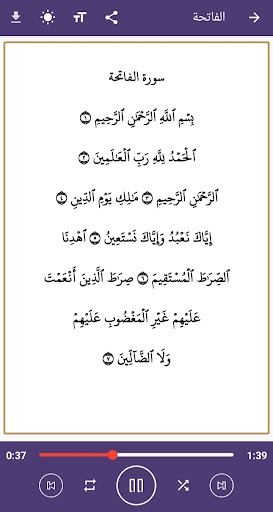 الفاتحة
سورة الفاتحة
بِسْمِ ٱللَّهِ ٱلرَّحْمَٰنِ ٱلرَّحِيمِ ۝١
ٱلْحَمْدُ لِلَّهِ رَبِّ ٱلْعَـٰلَمِينَ ۝٢
ٱلرَّحْمَٰنِ ٱلرَّحِيمِ ۝٣ مَـٰلِكِ يَوْمِ ٱلدِّينِ ۝٤
إِيَّاكَ نَعْبُدُ وَإِيَّاكَ نَسْتَعِينُ ۝٥ ٱهْدِنَا
ٱلصِّرَٰطَ ٱلْمُسْتَقِيمَ ۝٦ صِرَٰطَ ٱلَّذِينَ أَنْعَمْتَ
عَلَيْهِمْ غَيْرِ ٱلْمَغْضُوبِ عَلَيْهِمْ
وَلَا ٱلضَّآلِّينَ ۝٧
0:37 1:39